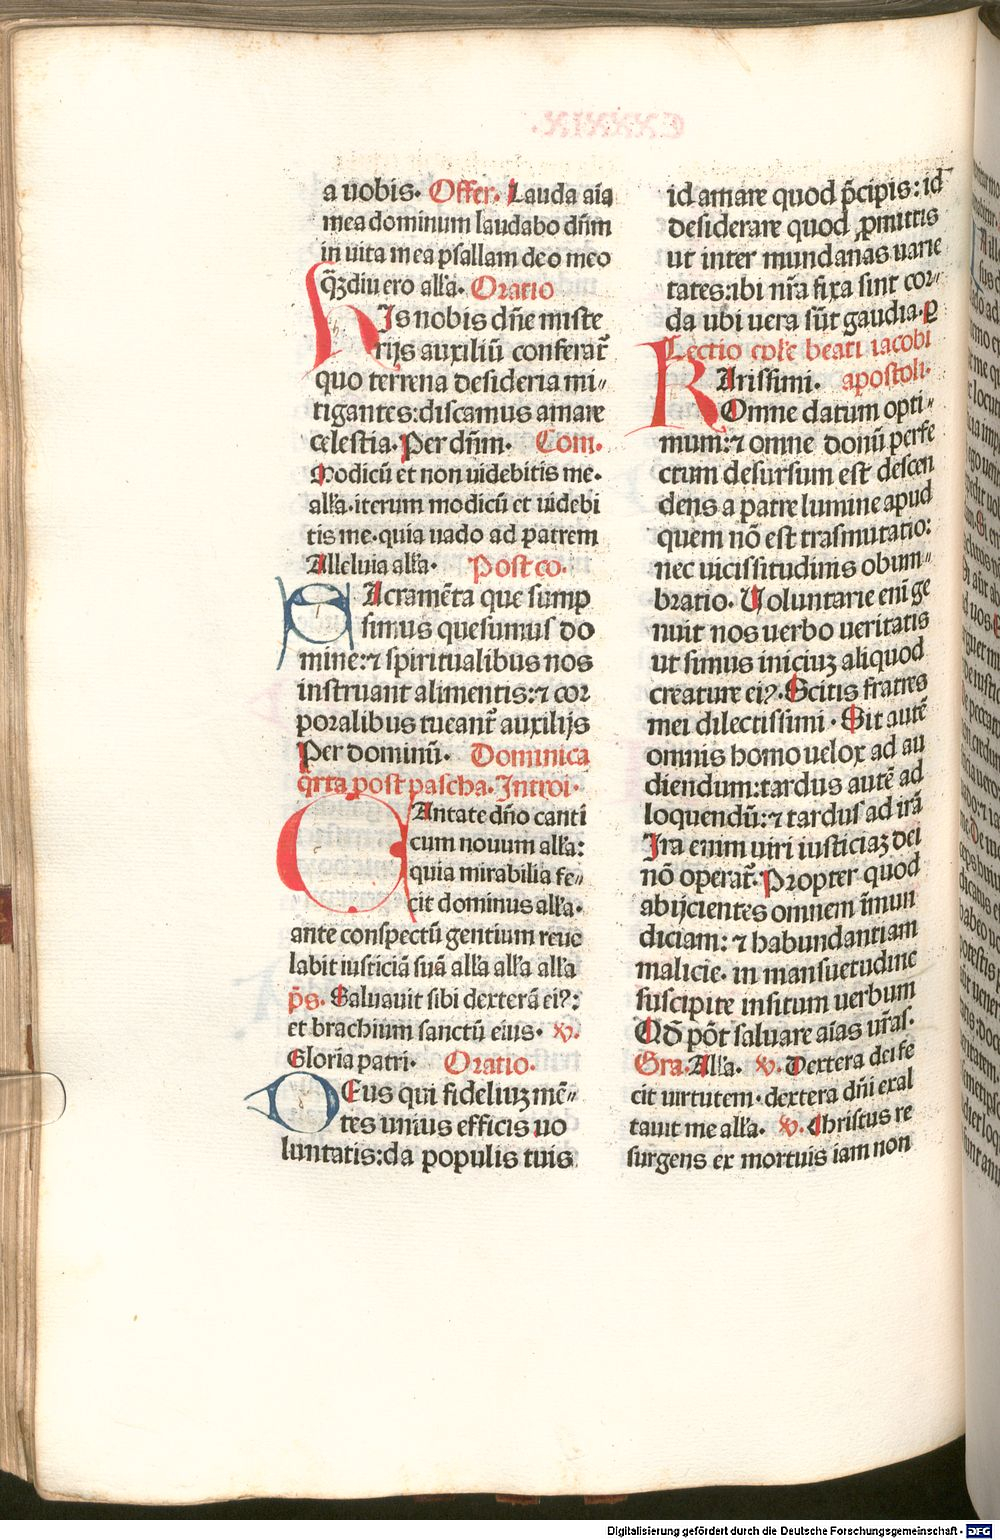 a uobis. Offer. Lauda aĩa
mea dominum laudabo dñm
in uita mea psallam deo meo
q̃ꝫdiu ero alľa. Oratio
HIs nobis dñe miste
rijs auxiliũ conferat᷑
quo terrena desideria mi⸗
tigantes: discamus amare
celestia. Per dñm. Com.
Modicũ et non uidebitis me.
alľa. iterum modicũ et uidebi
tis me. quia uado ad patrem
Alleluia alľa. Post co.
SAcramẽta que sump
simus quesumus do
mine: ⁊ spiritualibus nos
instruant alimentis: ⁊ cor
poralibus tueant᷑ auxilijs
Per dominũ. Dominica
q̃rta post pascha. Introi.
CAntate dño canti
cum nouum alľa:
quia mirabilia fe⸗
cit dominus alľa.
ante conspectũ gentium reue
labit iusticiã suã alľa alľa alľa
p̃s. Saluauit sibi dexterã eiꝰ:
et brachium sanctũ eius. v.
Gloria patri. Oratio.
DEus qui fideliuꝫ mẽ⸗
tes unius efficis uo
luntatis: da populis tuis
id amare quod p̃cipis: id
desiderare quod ꝓmittis
ut inter mundanas uarie
tates: ibi nr̃a fixa sint cor⸗
da ubi uera sũt gaudia. ꝑ
Lectio epľe beati iacobi
KArissimi. apostoli.
Omne datum opti⸗
mum: ⁊ omne donũ perfe
ctum desursum est descen
dens a patre lumine apud
quem nõ est trasmutatio:
nec uicissitudinis obum⸗
bratio. Uoluntarie enĩ ge
nuit nos uerbo ueritatis
ut simus iniciuꝫ aliquod
creature eiꝰ. Scitis fratres
mei dilectissimi. Sit autẽ
omnis homo uelox ad au
diendum: tardus autẽ ad
loquendũ: ⁊ tardus ad irã
Ira enim uiri iusticiaꝫ dei
nõ operat᷑. Propter quod
abijcientes omnem ĩmun
diciam: ⁊ habundantiam
malicie. in mansuetudine
suscipite insitum uerbum
Qđ põt saluare aĩas ur̃as.
Gra. Alľa. v. Dextera dei fe
cit uirtutem. dextera dñi exal
tauit me alľa. v. Christus re
surgens ex mortuis iam non
Digitalisierung gefördert durch die Deutsche Forschungsgemeinschaft - DFG